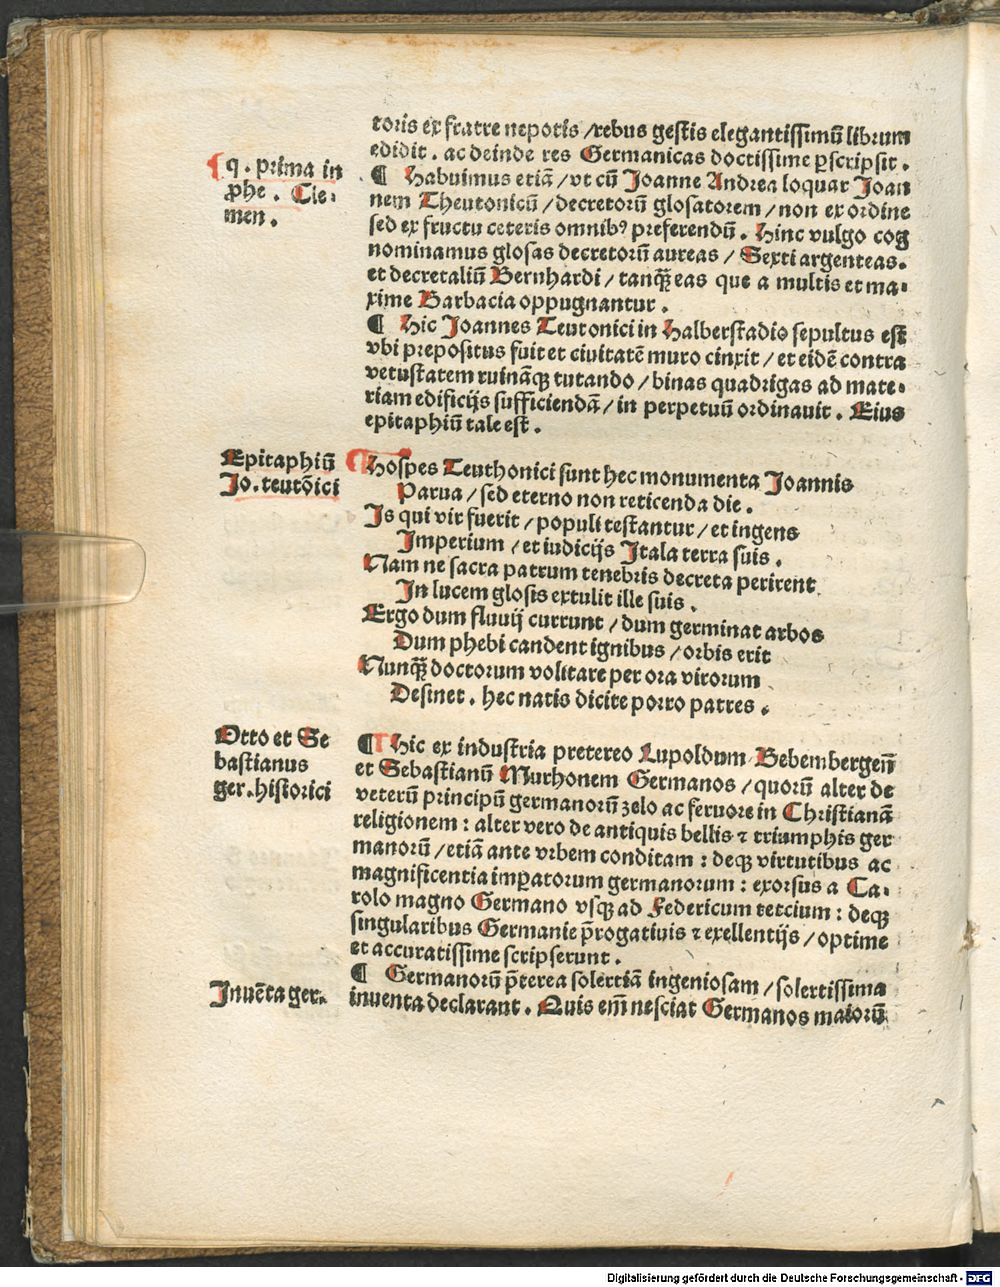 toris ex fratre nepotis / rebus gestis elegantissimū librum
edidit . ac deinde res Germanicas doctissime ꝑscripsit .
q . prima in
ꝓhe . Cle-
men .
¶ Habuimus etiā / vt cū Joanne Andrea loquar Joan
nem Theutonicū / decretorū glosatorem / non ex ordine
sed ex fructu ceteris omnibꝰ preferendū . Hinc vulgo cog
nominamus glosas decretorū aureas / Sexti argenteas.
et decretaliū Bernhardi / tanqꝫ eas que a multis et ma-
xime Barbacia oppugnantur .
¶ Hic Joannes Teutonici in Halberstadio sepultus est
vbi prepositus fuit et ciuitatē muro cinxit / et eidē contra
vetustatem ruināqꝫ tutando / binas quadrigas ad mate-
riam edificijs sufficiendā / in perpetuū ordinauit . Eius
epitaphiū tale est .
Epitaphiū
Jo. teutōici
Hospes Teuthonici sunt hec monumenta Joannis
Parua / sed eterno non reticenda die .
Js qui vir fuerit / populi testantur / et ingens
Imperium / et iudicijs Jtala terra suis .
Nam ne sacra patrum tenebris decreta perirent
In lucem glosis extulit ille suis .
Ergo dum fluuij currunt / dum germinat arbos
Dum phebi candent ignibus / orbis erit
Nunqꝫ doctorum volitare per ora virorum
Desinet . hec natis dicite porro patres .
Otto et Se
bastianus
ger. historici
¶ Hic ex industria pretereo Lupoldum Bebembergeñ
et Sebastianū Murhonem Germanos / quorū alter de
veterū principū germanorū zelo ac feruore in Christianā
religionem : alter vero de antiquis bellis ⁊ triumphis ger
manorū / etiā ante vrbem conditam : deqꝫ virtutibus ac
magnificentia imꝑatorum germanorum : exorsus a Ca-
rolo magno Germano vsqꝫ ad Federicum tercium : deqꝫ
singularibus Germanie p̄rogatiuis ⁊ exellentijs / optime
et accuratissime scripserunt .
Inuēta ger.
¶ Germanorū p̄terea solertiā ingeniosam / solertissima
inuenta declarant . Quis em̄ nesciat Germanos maiorū
Digitalisierung gefördert durch die Deutsche Forschungsgemeinschaft - DFG